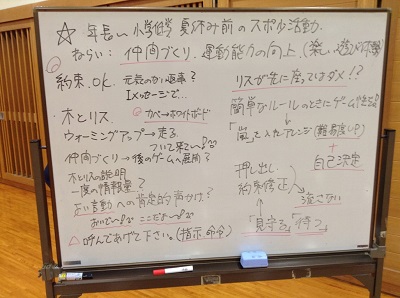 ☆ 年長〜小学低学 夏休み前のスポ少活動.
ねらい: 仲間づくり. 運動能力の向上. (楽しい遊び体験)
約束.OK. 元気のない返事?
Iメッセージで…
・木とリス
カベ→ホワイトボード
ウォーミングアップ→走る
ついて来て〜
仲間づくり→後のゲームへ展開?
木とリスの説明
一度の情報量?
良い言動への肯定的声かけ?
おいで〜 ここだよ〜
△呼んであげて下さい。(指示.命令)
リスが先に座ってるダメ!?
簡単なルールのときにゲーム
「嵐」を入れたアレンジ(難易度UP)
+
自己決定
押し出し
約束修正
流さない
「見守る」「待つ」